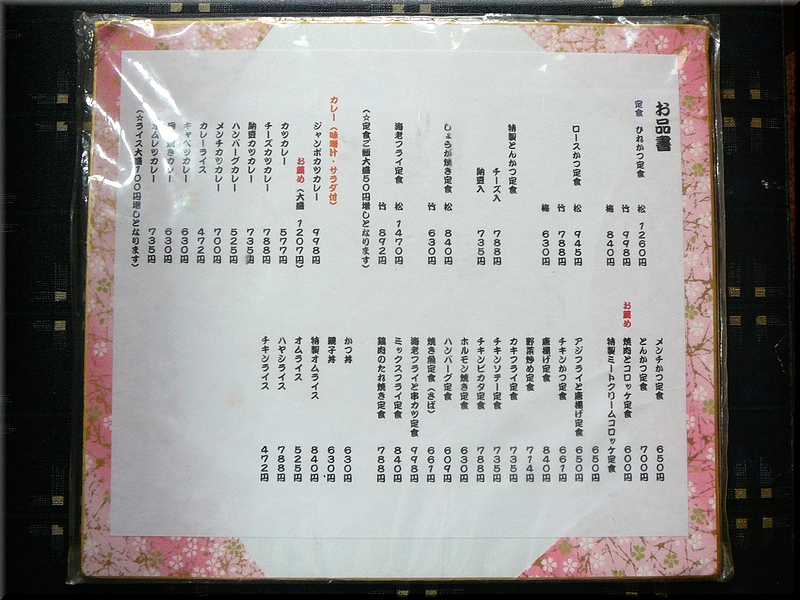 お品書
定食 ひれかつ定食 松 1260円
竹 998円
梅 840円
ロースかつ定食 松 945円
竹 788円
梅 630円
特製とんかつ定食
チーズ入 788円
納豆入 735円
しょうが焼き定食 松 840円
竹 630円
海老フライ定食 松 1470円
竹 892円
(☆定食ご飯大盛50円増しとなります)
カレー(味噌汁・サラダ付)
ジャンボカツカレー 998円
お薦め(大盛 1207円)
カツカレー 577円
チーズカツカレー 788円
納豆カツカレー 735円
ハンバーグカレー 525円
メンチカツカレー 700円
カレーライス 472円
キャベツカレー 630円
カレー 630円
オムレツカレー 735円
(☆ライス大盛100円増しとなります)
メンチかつ定食 650円
とんかつ定食 700円
お薦め 焼肉とコロッケ定食 600円
特製ミートクリームコロッケ定食 650円
アジフライと唐揚げ定食 650円
チキンかつ定食 661円
唐揚げ定食 840円
野菜炒め定食 714円
カキフライ定食 735円
チキンソテー定食 735円
チキンピカタ定食 788円
ホルモン焼き定食 630円
ハンバーグ定食 609円
焼き魚定食(さば) 661円
海老フライと串カツ定食 998円
ミックスフライ定食 840円
鶏肉のたれ焼き定食 788円
かつ丼 630円
親子丼 630円
特製オムライス 840円
オムライス 525円
ハヤシライス 788円
チキンライス 472円